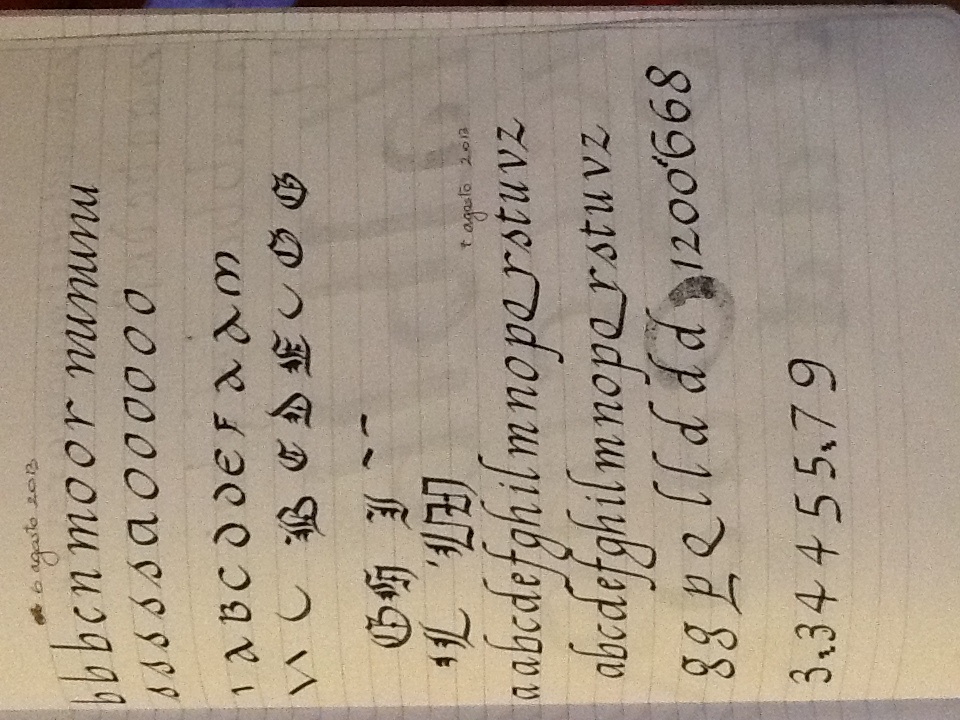 6 agosto 2013
bbbcnmoor nunumu
ssssaoooooo
ıaBCDDEFaam
BCDECGG
GH I
L LM
7 agosto 2013
aabcdefghilmnopqrstuvz
abcdefghilmnopqrstuvz
ggpqlldddd 1200668
3344557 9